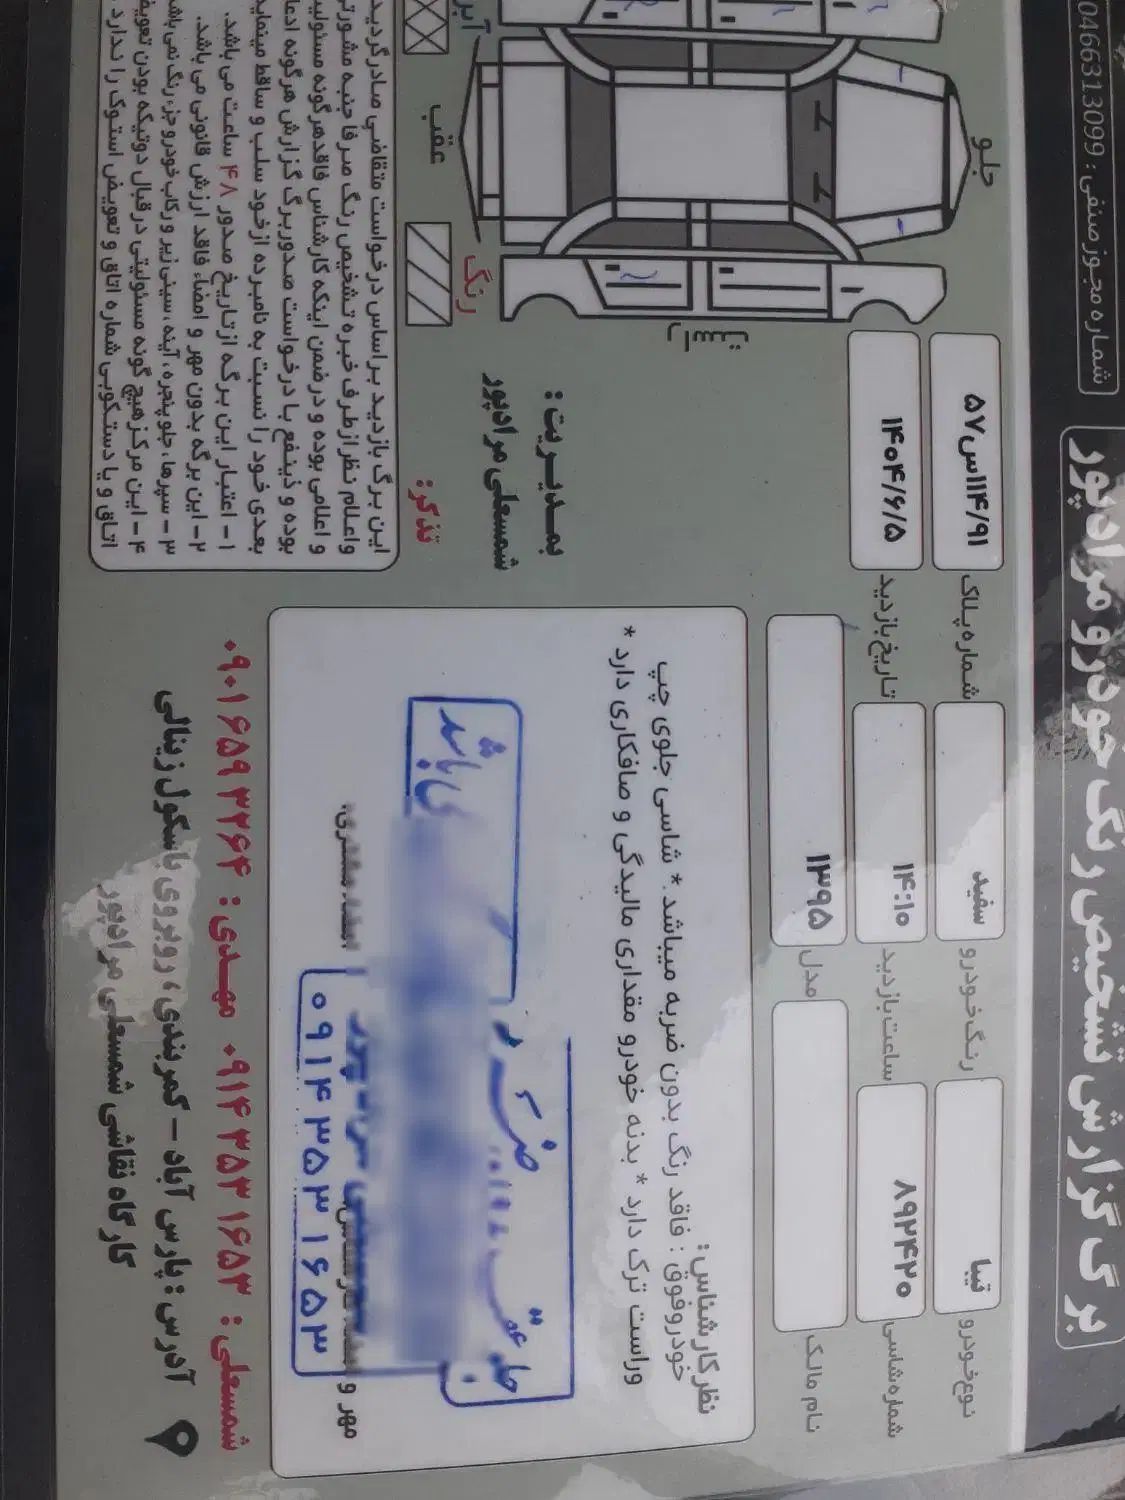 شماره مجوز صنفی : 0466313099
برگ گزارش تشخیص رنگ خودرو مرادپور
نوع خودرو تیبا رنگ خودرو سفید شماره پلاک ۵۷س۱۱۴/۹۱
شماره شاسی ۸۹۲۴۲۰ ساعت بازدید ۱۴:۱۰ تاریخ بازدید ۱۴۰۴/۶/۵
نام مالک مدل ۱۳۹۵
نظر کارشناس :
خودرو فوق : فاقد رنگ بدون ضربه میباشد * شاسی جلوی چپ
وراست ترک دارد * بدنه خودرو مقداری مالیدگی و صافکاری دارد *
جلو
عقب
رنگ
بمدیریت :
شمسعلی مرادپور
تذکر :
این برگ بازدید براساس درخواست متقاضی صادر گردید
واعلام نظر از طرف خبره تشخیص رنگ صرفا جنبه مشورتی
و اعلامی بوده و درضمن اینکه کارشناس فاقد هرگونه مسئولیت
بوده و ذینفع با درخواست صدور برگ گزارش هرگونه ادعا
بعدی خود را نسبت به نامبرده از خود سلب و ساقط مینماید
۱- اعتبار این برگه از تاریخ صدور ۴۸ ساعت می باشد.
۲- این برگه بدون مهر و امضاء فاقد ارزش قانونی می باشد.
۳- سپرها، جلو پنجره، آینه، سینی زیر و رکاب خودرو جزء رنگ نمی باشد
۴- این مرکز هیچ گونه مسئولیتی در قبال دوتیکه بودن تعویض
اتاق و یا دستکوبی شماره اتاق و تعویض استوک را ندارد
می باشد
جلو عقب
۰۹۱۴۳۵۳۱۶۵۳
مهر و
امضاء مشتری:
شمسعلی : ۰۹۱۴۳۵۳۱۶۵۳ مهدی : ۰۹۰۱۶۵۹۳۲۶۴
آدرس : پارس آباد - کمربندی، روبروی باسکول زینالی
کارگاه نقاشی شمسعلی مرادپور